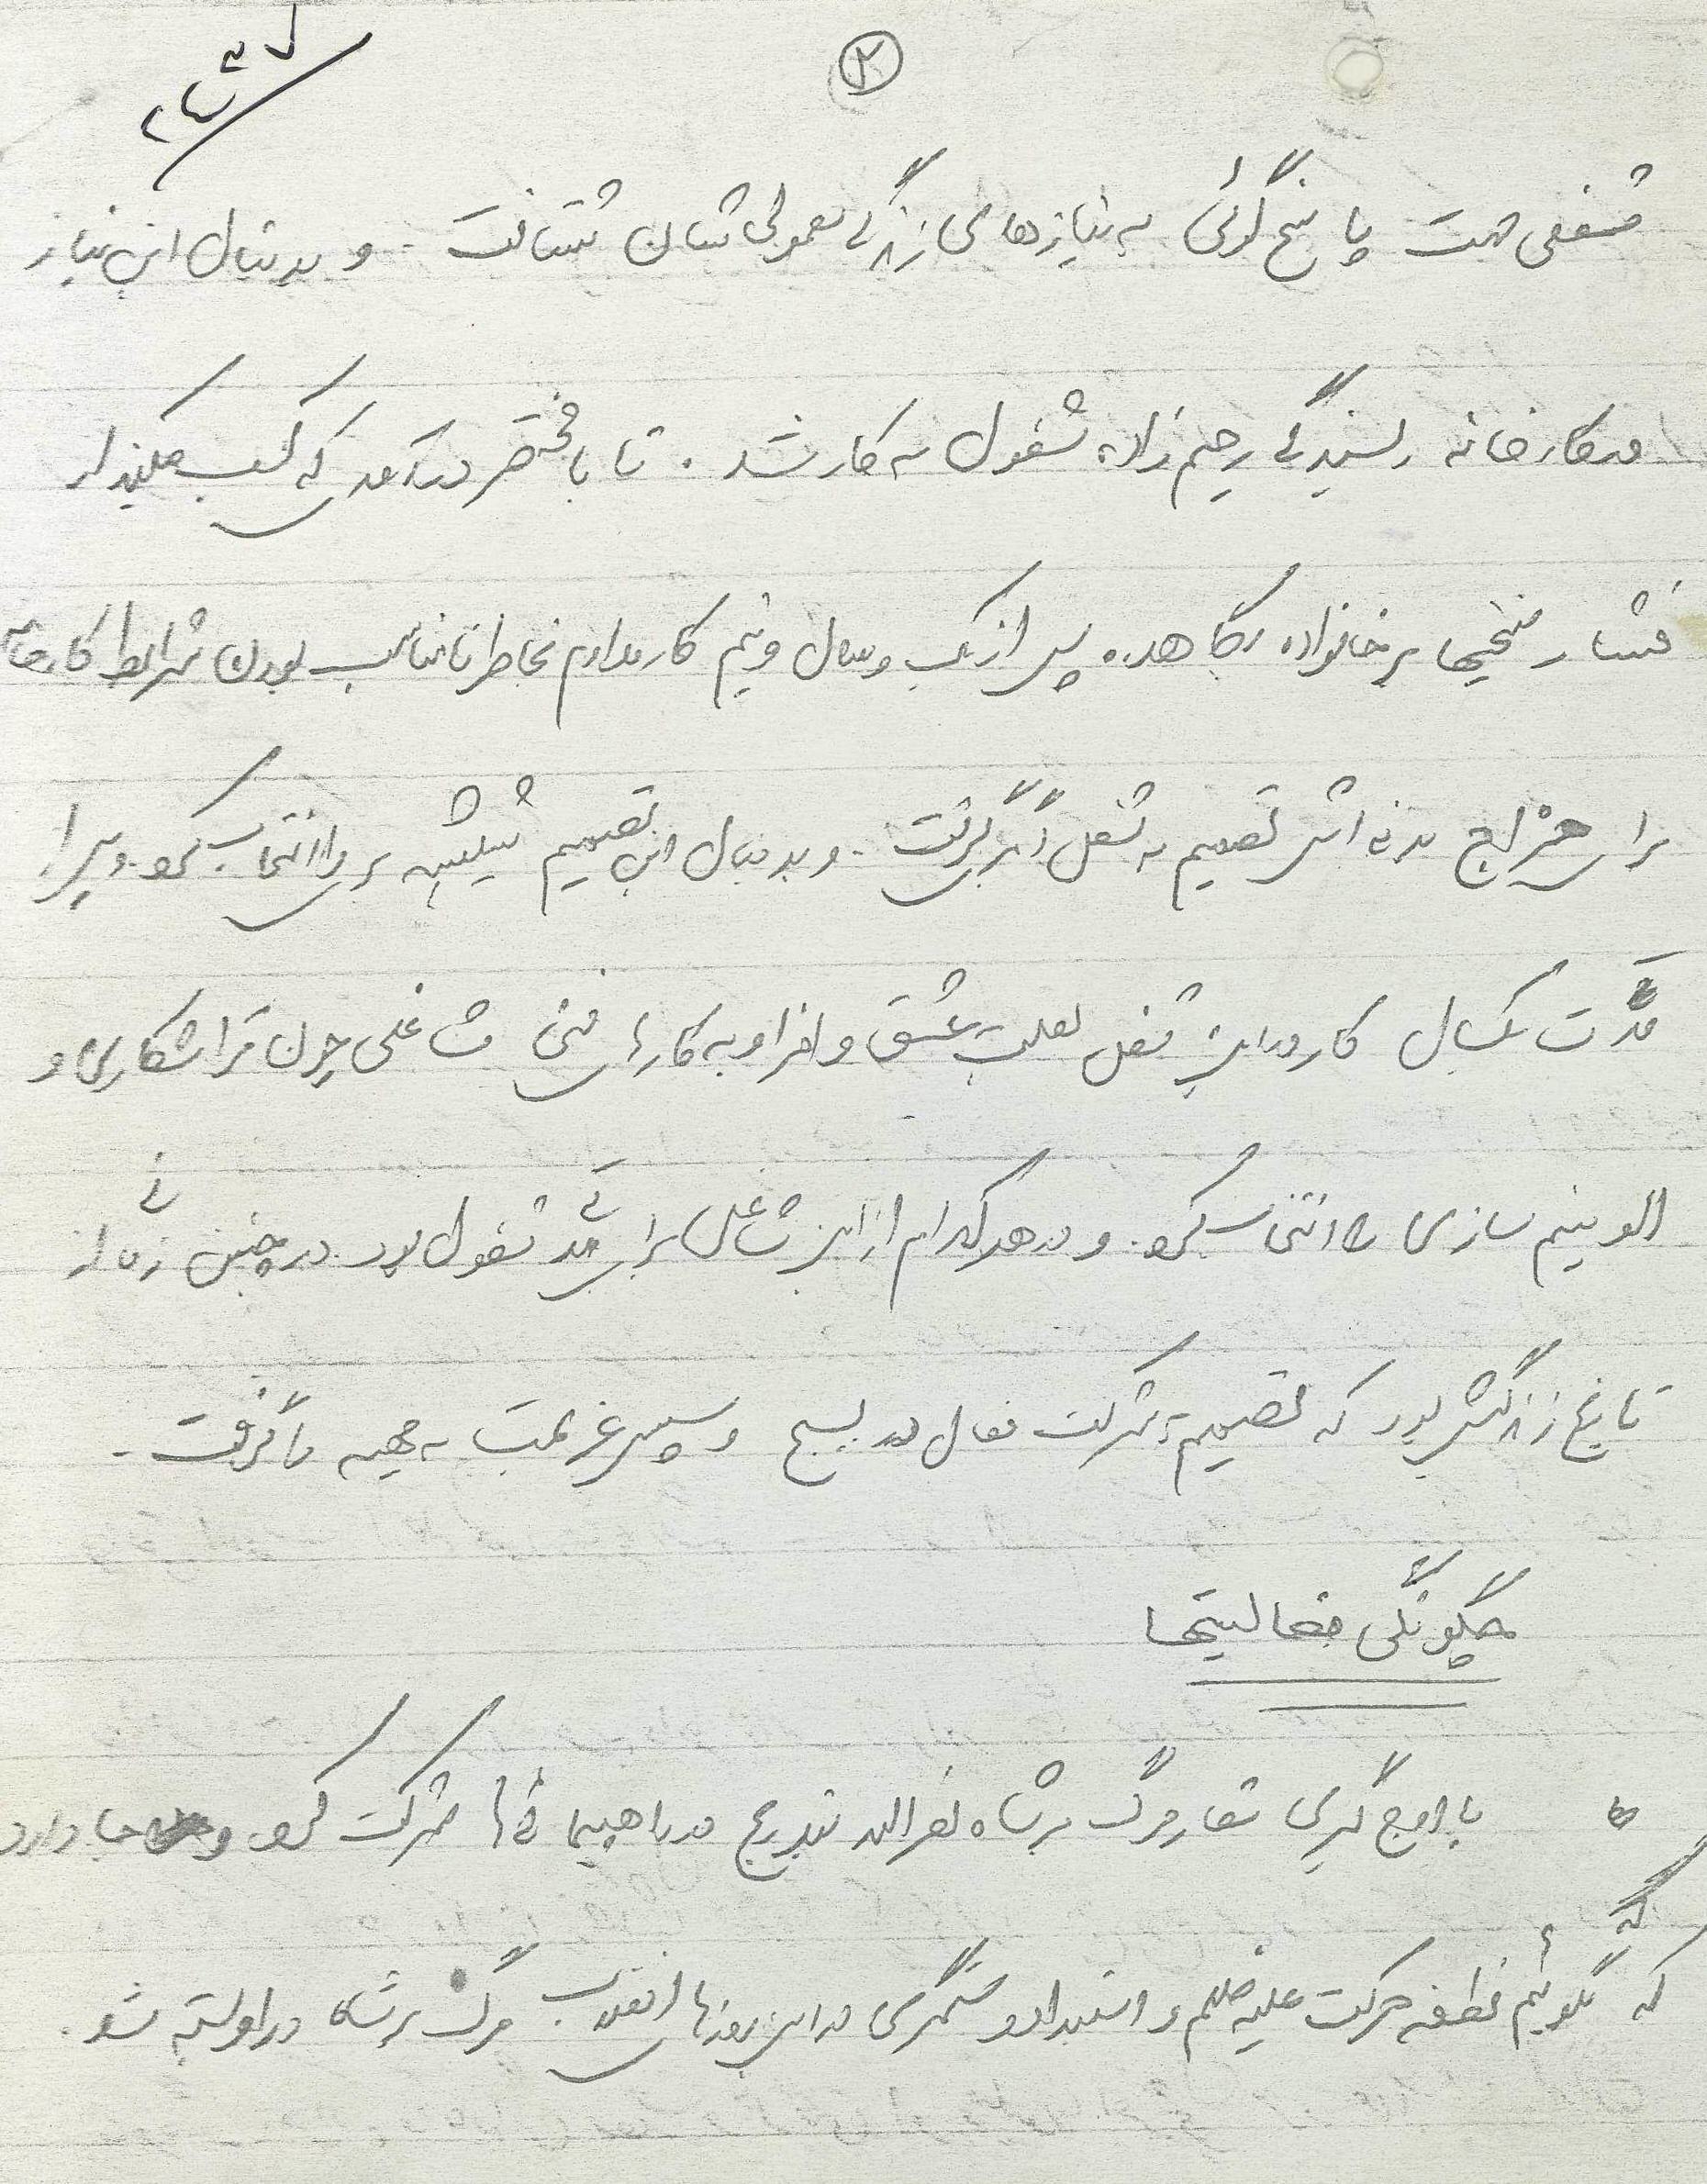 ۲
شغلی جهت پاسخ گوئی به نیازهای زندگی معمولی شان شتافت. و بدنبال این نیاز
در کارخانه ریسندگی رحیم زاده مشغول به کار شد. تا با مختصر درآمدی که کسب میکند از
فشار سختیها بر خانواده بکاهد. پس از یک و سال و نیم کار مداوم بخاطر نامناسب بودن شرایط کارخانه
برای مزاج بدنی اش تصمیم به شغل دیگر گرفت. و بدنبال این تصمیم شیشه بری را انتخاب کرد. و پس از
مدّت یکسال کار در این شغل بعلت عشق وافر او به کارهای فنی مشاغلی چون تراشکاری و
آلومینیم سازی را انتخاب کرد. و در هر کدام از این مشاغل برای مدتی مشغول بود. در چنین زمانی از
تاریخ زندگیش بود که تصمیم به شرکت فعال در بسیج و سپس عزیمت به جبهه را گرفت.
چگونگی فعالیتها
با اوج گیری شعار مرگ بر شاه نصرالله بتدریج در راهپیمائی‌ها شرکت کرد و جا دارد
که بگوئیم نطفه حرکت علیه ظلم و استبداد و ستمگری در این روزهای انقلاب مرگ بر شاه در او بسته شد.